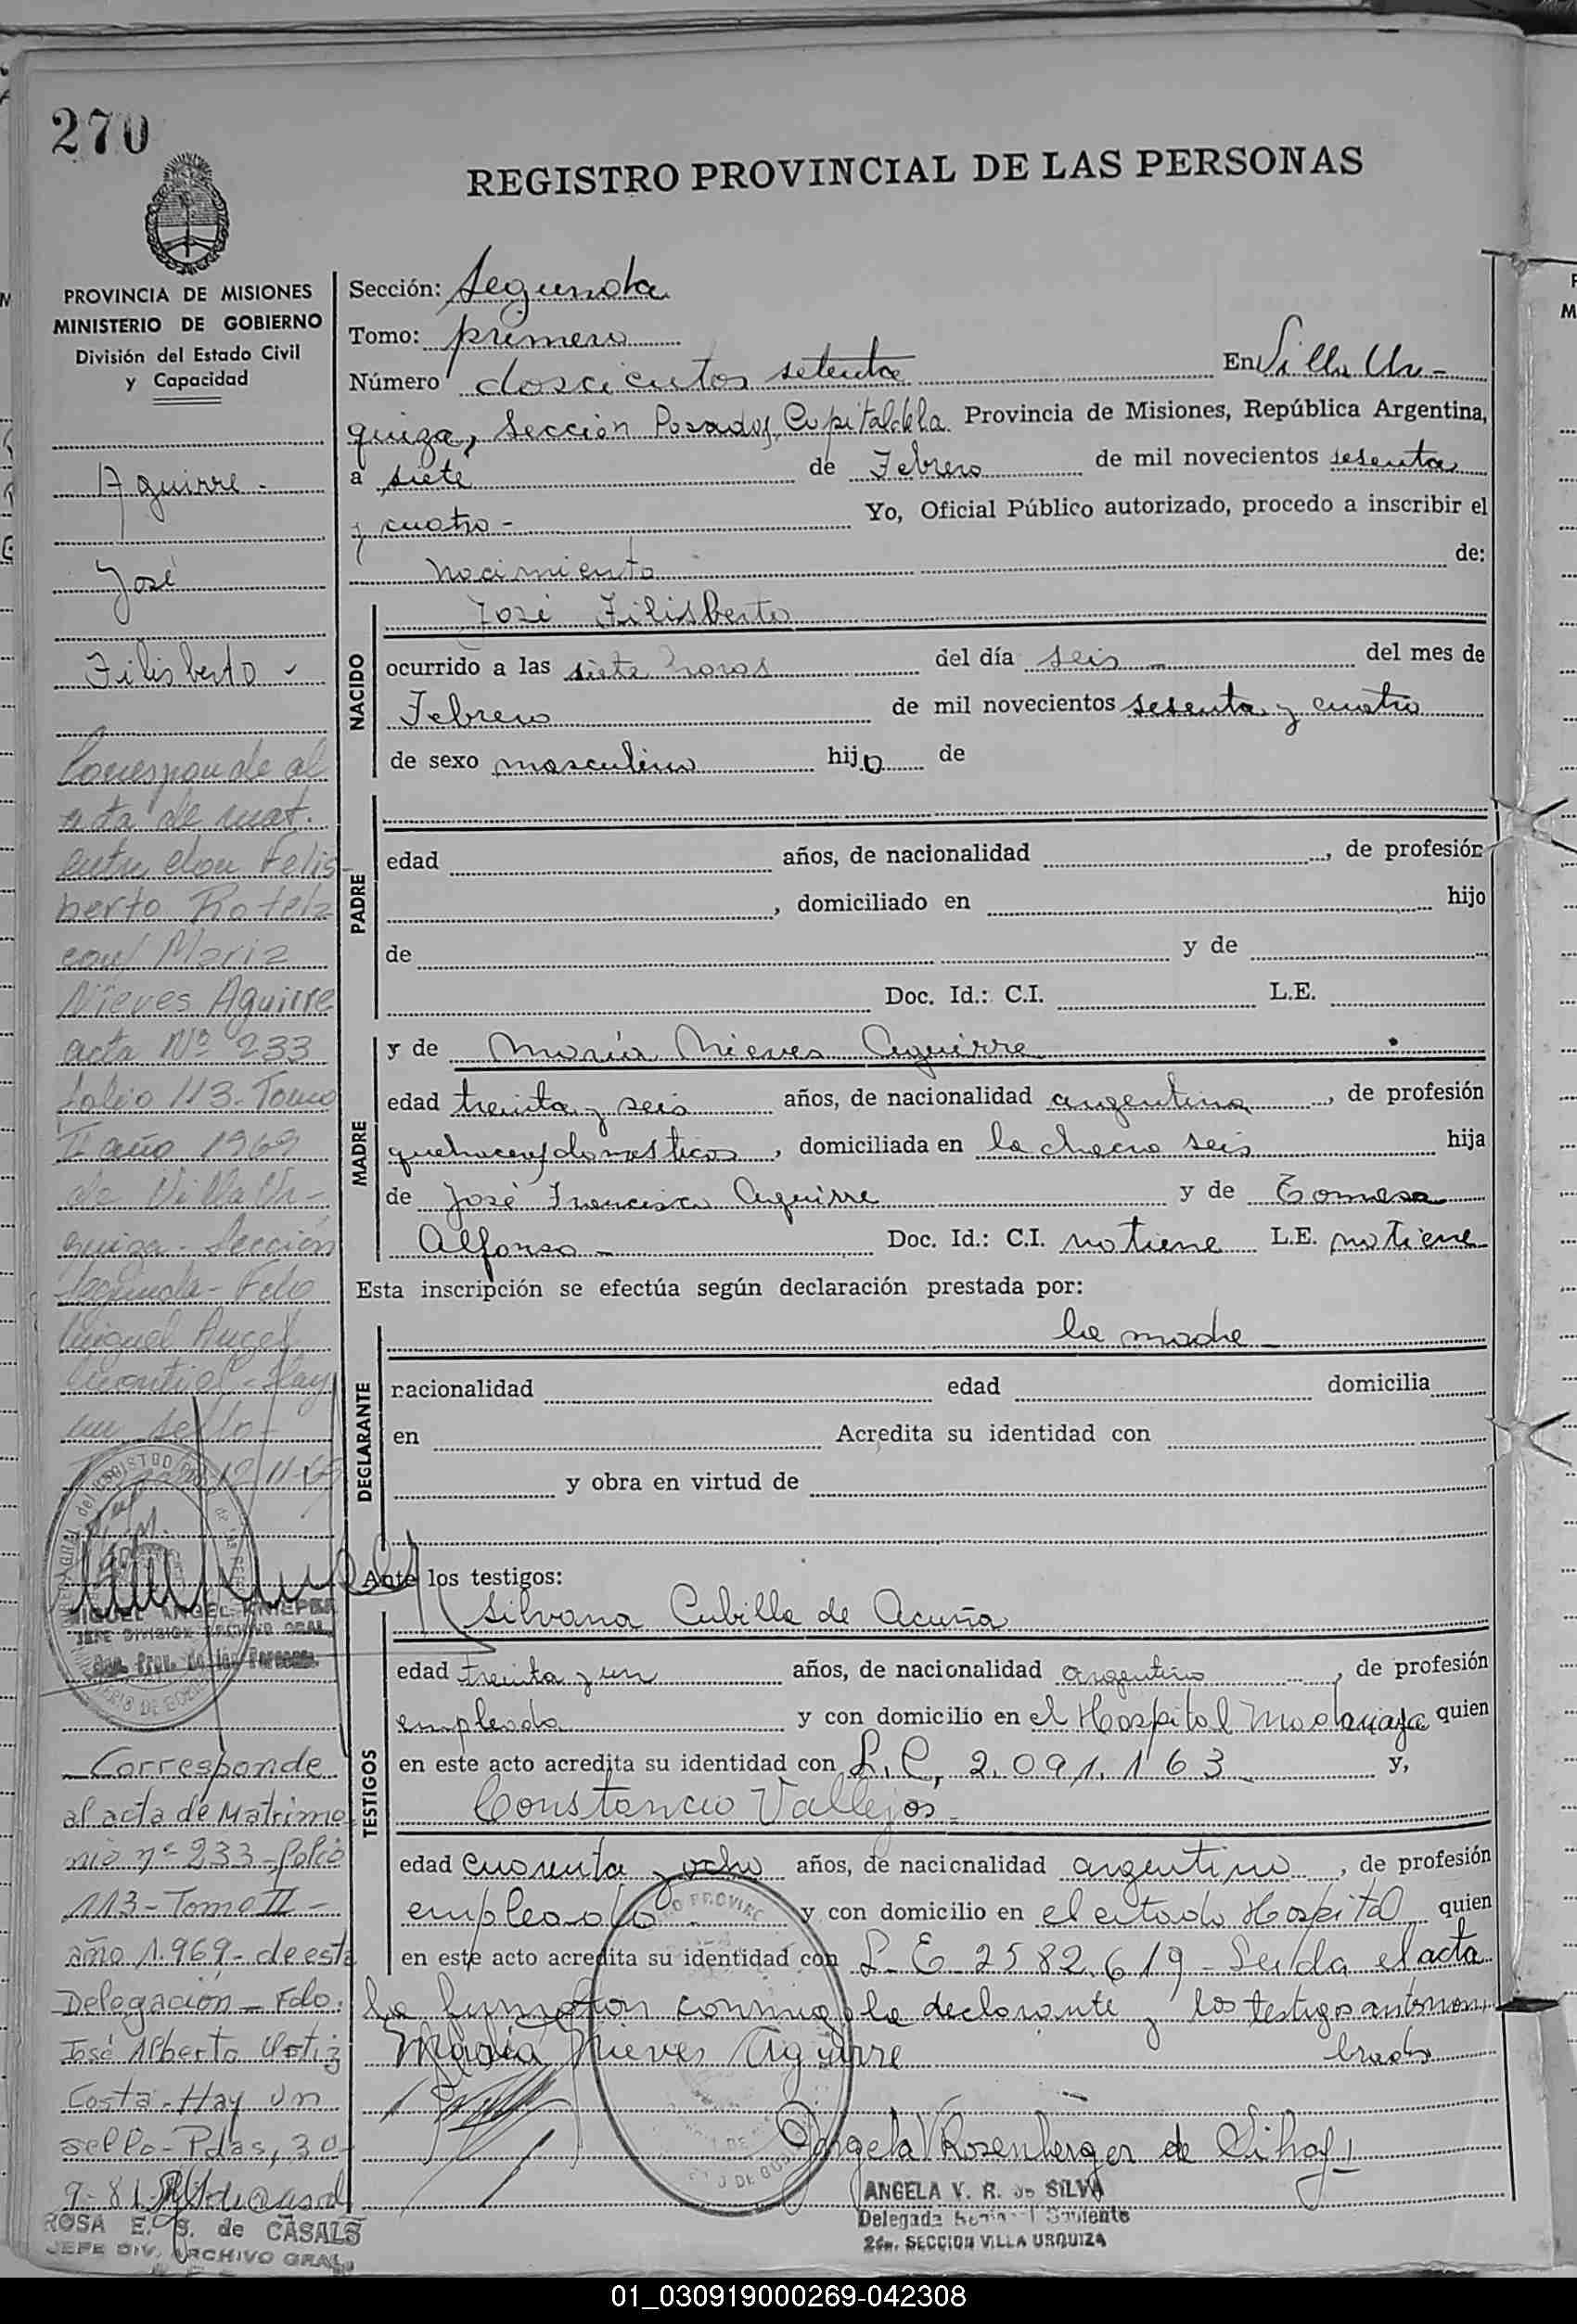 270
REGISTRO PROVINCIAL DE LAS PERSONAS
PROVINCIA DE MISIONES
MINISTERIO DE GOBIERNO
División del Estado Civil
y Capacidad
Aguirre.-
José
Filisberto -
Corresponde al
acta de mat.
entre don Felis
berto Rotela
con María
Nieves Aguirre
acta Nº 233
folio 113. Tomo
II año 1969
de Villa Ur-
quiza - Sección
Segunda - Fdo
Miguel Angel
- Hay
un sello -
MIGUEL ANGEL
JEFE DIVISION ARCHIVO GRAL.
Reg. Prov. de las Personas
Corresponde
al acta de Matrimo
nio nº 233 - folio
113 - Tomo II -
año 1.969 - de esta
Delegación - Fdo.
José Alberto Ortiz
Costa - Hay un
sello - Pdas, 30-
9-81
ROSA E. G. de CASALS
JEFE DIV. ARCHIVO GRAL.
Sección: Segunda
Tomo: primero
Número doscientos setenta En Villa Ur-
quiza, Sección Posadas, Capital de la Provincia de Misiones, República Argentina,
a siete de Febrero de mil novecientos sesenta
y cuatro - Yo, Oficial Público autorizado, procedo a inscribir el
nacimiento de:
NACIDO
José Filisberto
ocurrido a las siete horas del día seis - del mes de
Febrero de mil novecientos sesenta y cuatro
de sexo masculino hijo de
PADRE
edad años, de nacionalidad , de profesión
, domiciliado en hijo
de y de
Doc. Id.: C.I. L.E.
MADRE
y de María Nieves Aguirre
edad treinta y seis años, de nacionalidad argentina , de profesión
quehaceres domésticos , domiciliada en la chacra seis hija
de José Francisco Aguirre y de Tomasa
Alfonso - Doc. Id.: C.I. no tiene L.E. no tiene
Esta inscripción se efectúa según declaración prestada por:
DECLARANTE
la madre
nacionalidad edad domicilia
en Acredita su identidad con
y obra en virtud de
Ante los testigos:
TESTIGOS
Silvana Cubilla de Acuña
edad treinta y un años, de nacionalidad argentina , de profesión
empleada y con domicilio en el Hospital Madariaga quien
en este acto acredita su identidad con L.C. 2.091.163 y,
Constancio Vallejos -
edad cuarenta y ocho años, de nacionalidad argentino , de profesión
empleado y con domicilio en el citado Hospital quien
en este acto acredita su identidad con L.E 2582.619 - Leída el acta
la firman conmigo la declarante y los testigos antenom-
brados
María Nieves Aguirre
Angela V Rosenberger de Silva
ANGELA V. R. de SILVA
Delegada
2da. SECCION VILLA URQUIZA
01_030919000269-042308